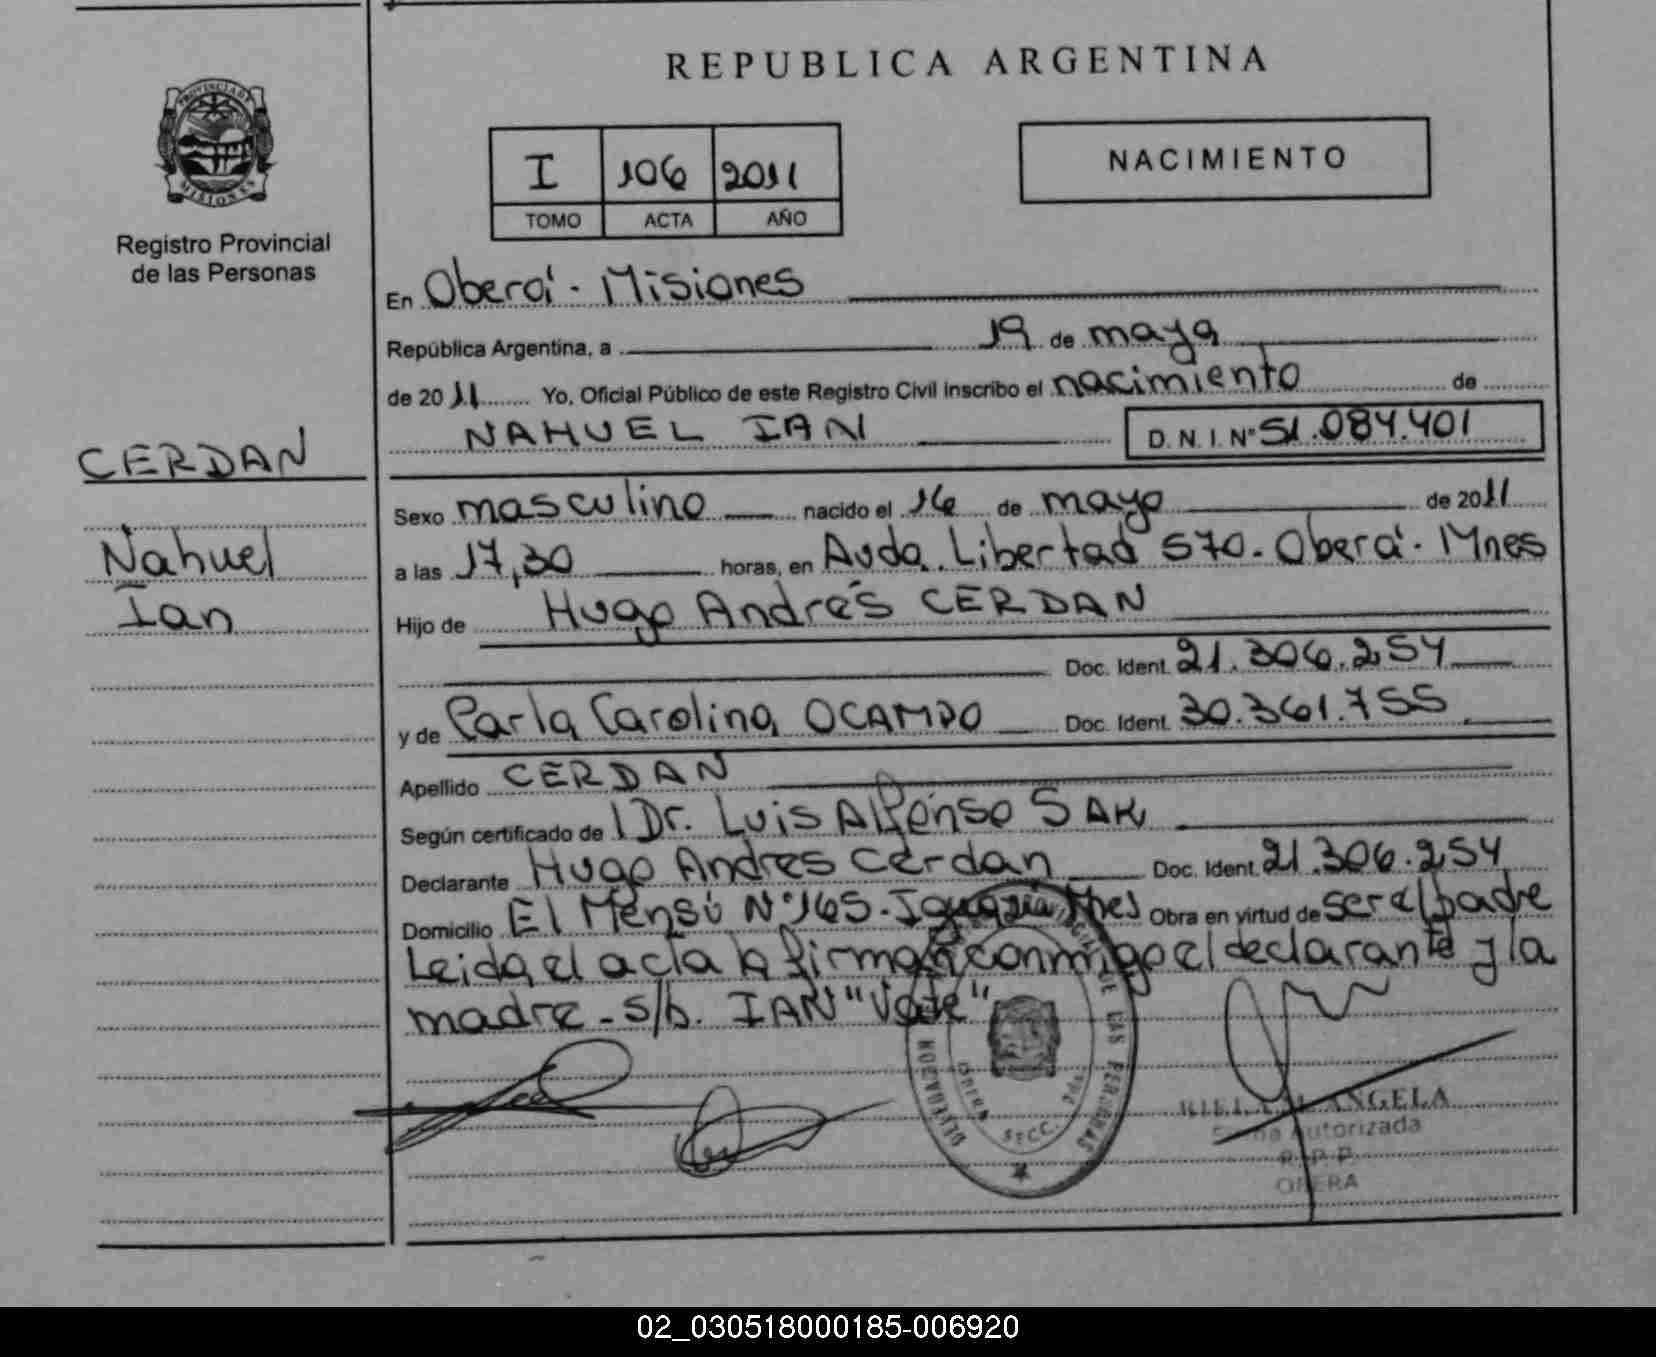 REPUBLICA ARGENTINA
PROVINCIA DE MISIONES
Registro Provincial
de las Personas
I 106 2011
TOMO ACTA AÑO
NACIMIENTO
CERDAN
Nahuel
Ian
En Oberá - Misiones
República Argentina, a 19 de mayo
de 2011 Yo, Oficial Público de este Registro Civil inscribo el nacimiento de
NAHUEL IAN D.N.I. Nº 51.084.401
Sexo masculino nacido el 16 de mayo de 2011
a las 17,30 horas, en Avda. Libertad 570 - Oberá - Mnes
Hijo de Hugo Andrés CERDAN
Doc. Ident. 21.306.254
y de Carla Carolina OCAMPO Doc. Ident. 30.361.755
Apellido CERDAN
Según certificado de Dr. Luis Alfonso SAK
Declarante Hugo Andres Cerdan Doc. Ident. 21.306.254
Domicilio El Mensú Nº 165 - Iguazú, Mnes Obra en virtud de ser el padre
Leida el acta la firman conmigo el declarante y la
madre - s/b. IAN "Vale"
DE LAS PERSONAS
OBERA
SECC. 2da.
ANGELA
Firma Autorizada
R.P.P.
OBERA
02_030518000185-006920